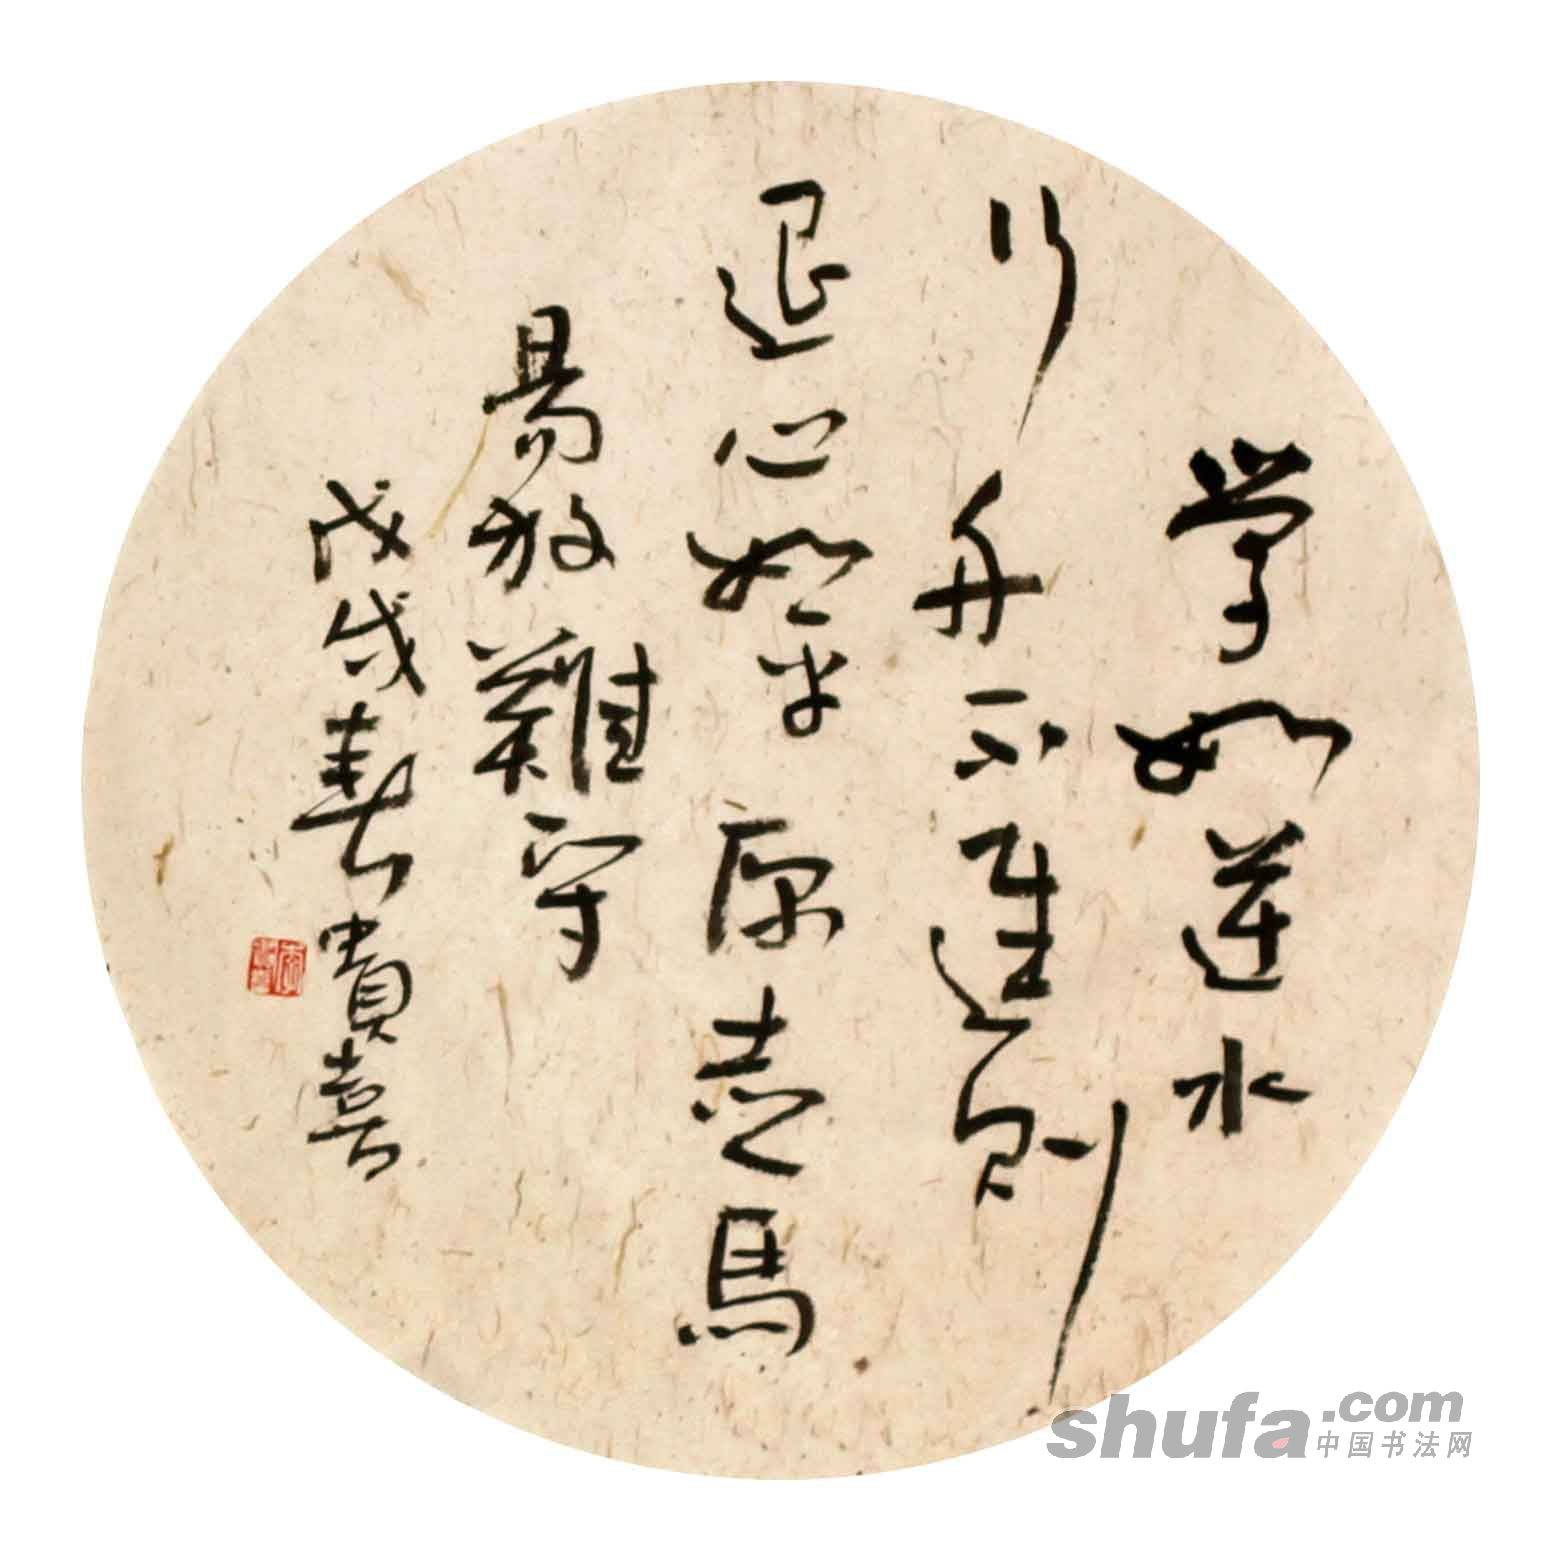 学如逆水
行舟不進則
退心如平原走馬
易放難守
戊戌春貴喜
shufa.com
中国书法网